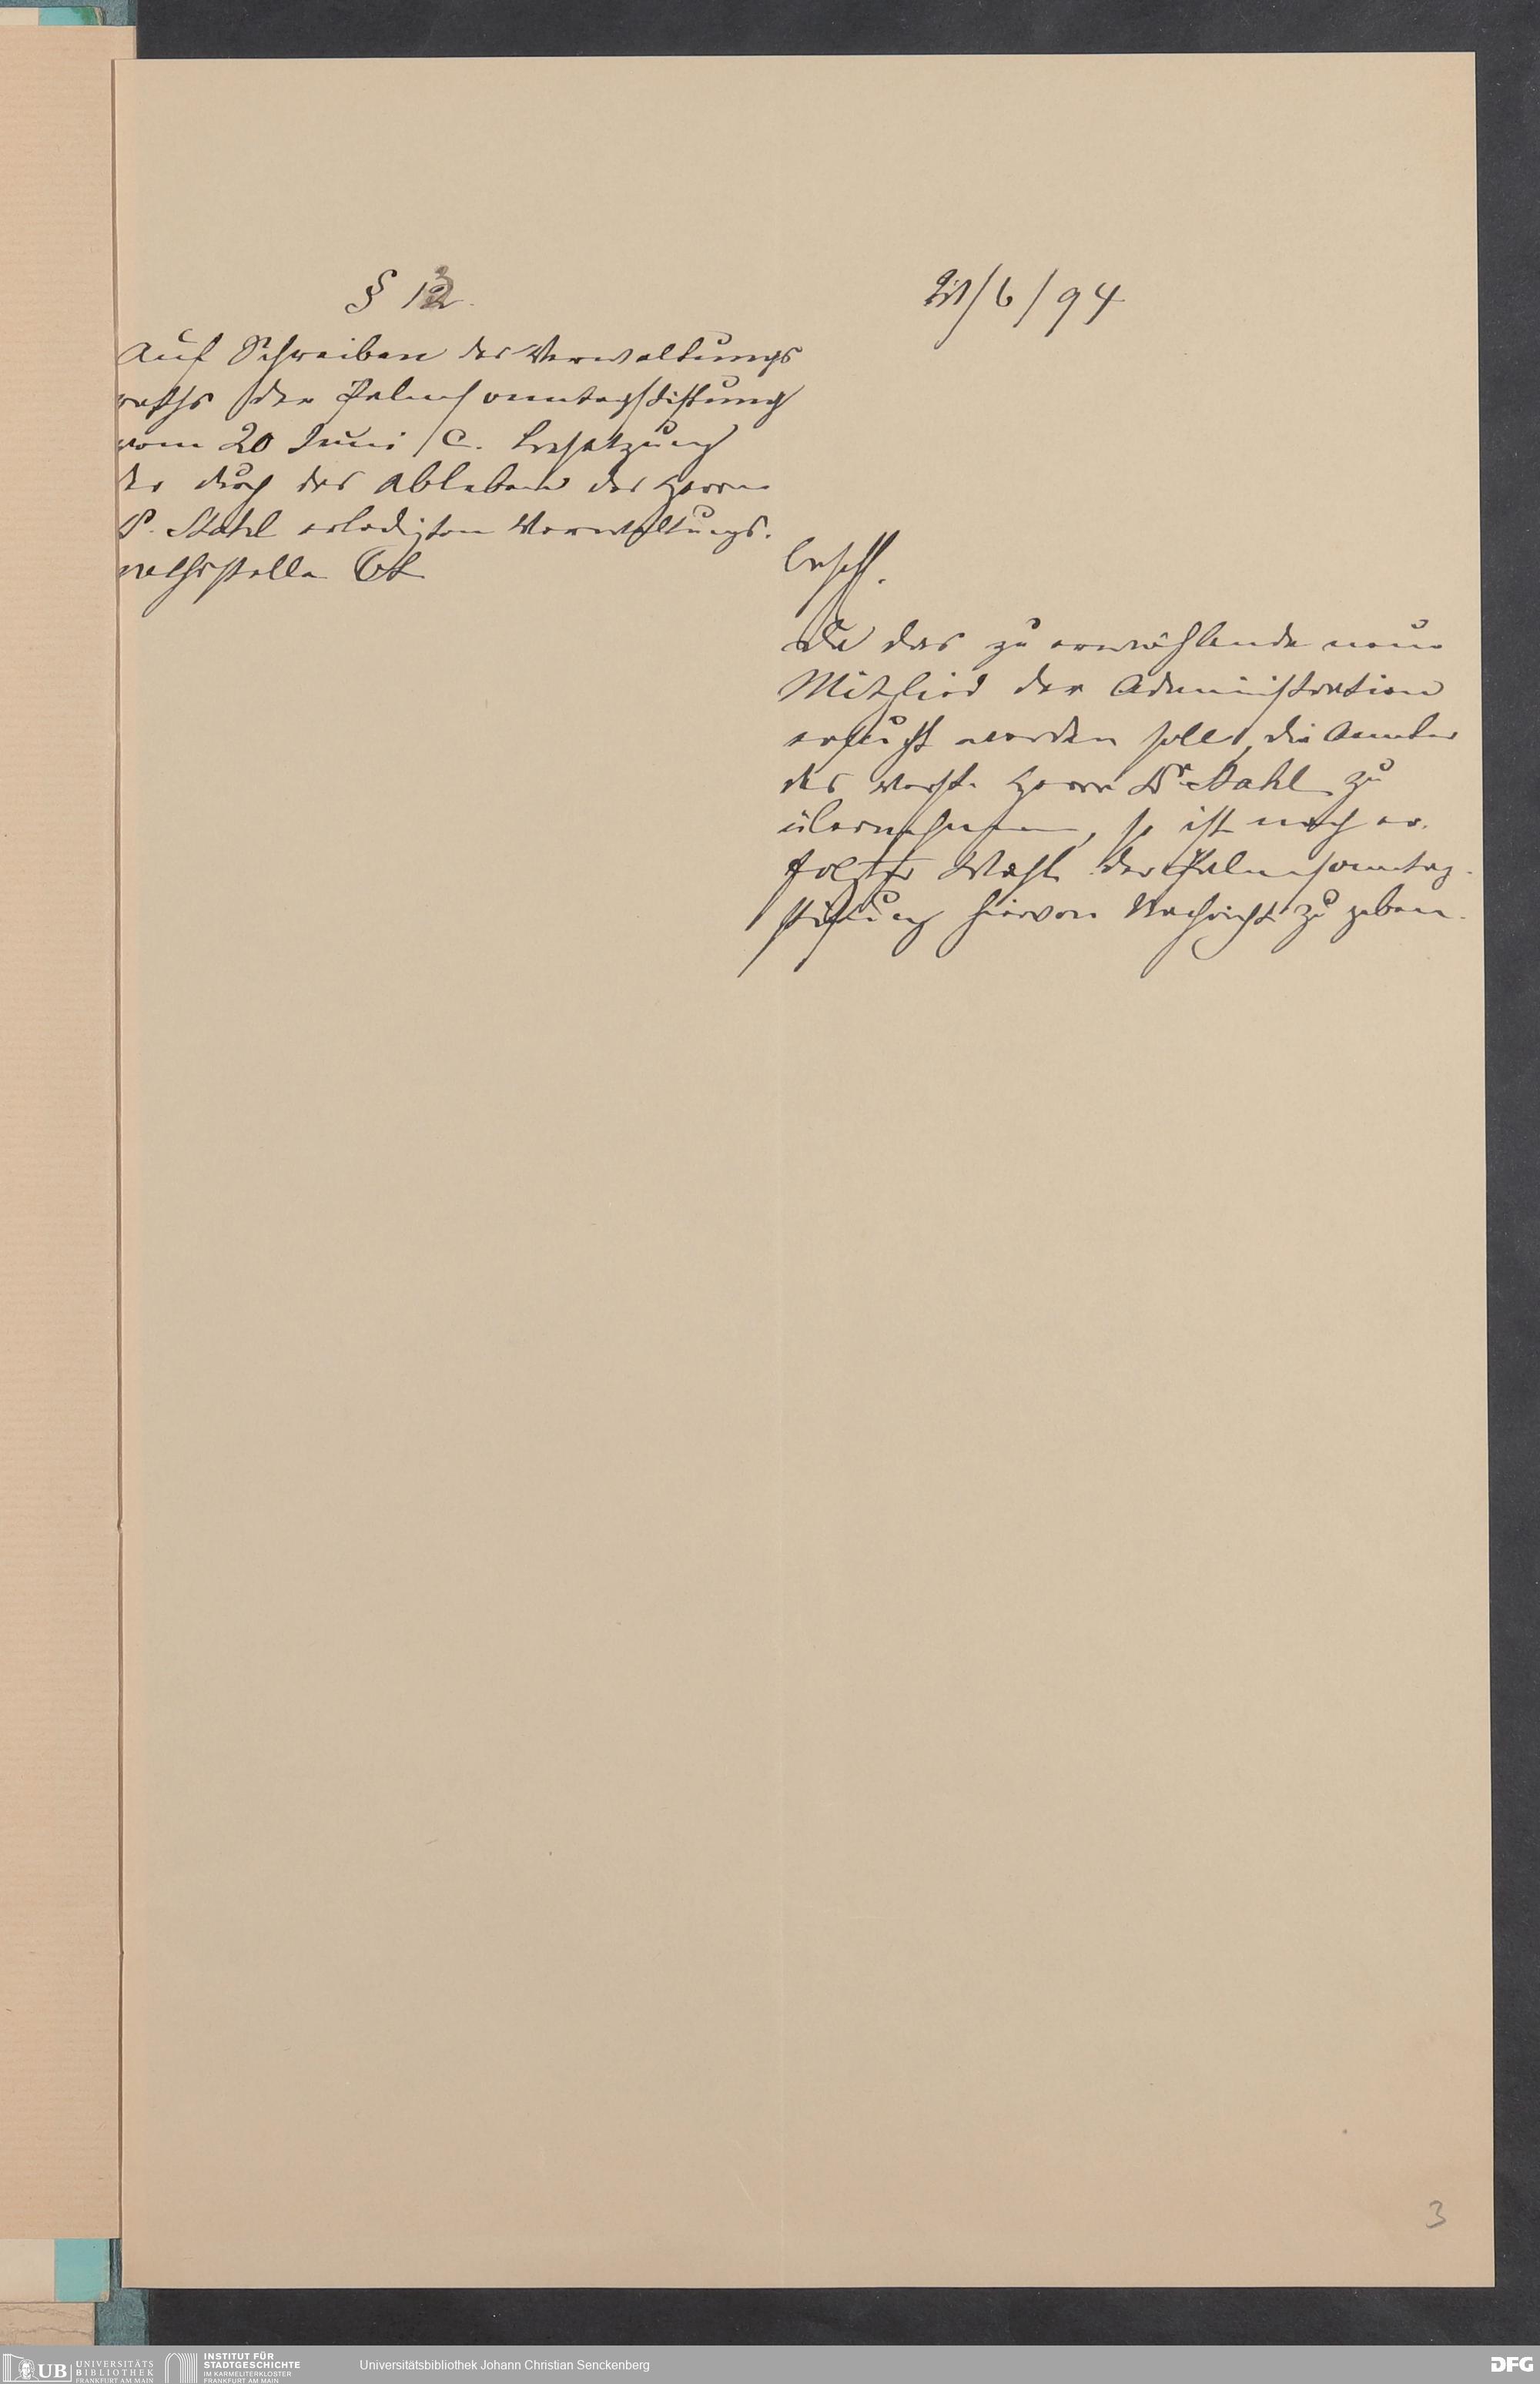 § 12.
21/6/94
Auf Schreiben des Verwaltungs
raths der Palmsonntagstiftung
vom 20 Juni /c. Besetzung
der durch das Ableben des Herrn
P. Stahl erledigten Verwaltungs-
rathsstelle
beschl.
Da das zu erwählende neue
Mitglied der Administration
ersucht werden soll, die Aemter
des verst. Herrn Dr. Stahl zu
übernehmen, so ist nach er-
folgter Wahl der Palmsonntag-
stiftung hiervon Nachricht zu geben.
3
UB UNIVERSITÄTS
BIBLIOTHEK
FRANKFURT AM MAIN
INSTITUT FÜR
STADTGESCHICHTE
IM KARMELITERKLOSTER
FRANKFURT AM MAIN
Universitätsbibliothek Johann Christian Senckenberg
DFG